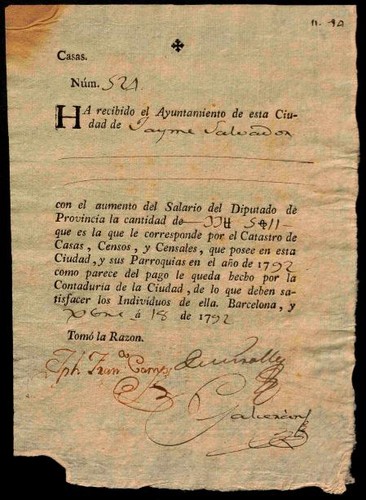 ✠
Casas.
Núm. 521
HA recibido el Ayuntamiento de esta Ciu-
dad de Jayme Salvador
con el aumento del Salario del Diputado de
Provincia la cantidad de
que es la que le corresponde por el Catastro de
Casas, Censos, y Censales, que posee en esta
Ciudad, y sus Parroquias en el año de 1792
como parece del pago le queda hecho por la
Contaduría de la Ciudad, de lo que deben sa-
tisfacer los Individuos de ella. Barcelona, y
Xbre á 18 de 1792
Tomó la Razon.
Jph Fran.co